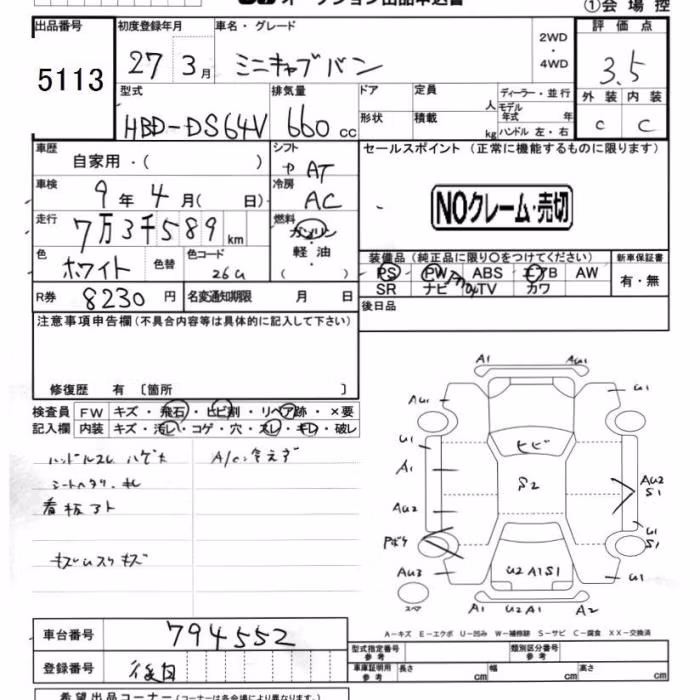 オークション出品申込書
①会場控
出品番号 初度登録年月 車名・グレード 2WD・4WD 評価点
5113 27 3月 ミニキャブバン 3.5
型式 排気量 ドア 定員 人 ディーラー・並行 外装 内装
HBD-DS64V 660cc 形状 積載 kg モデル年式 年 ハンドル 左・右 C C
車歴 自家用・( ) シフト AT セールスポイント (正常に機能するものに限ります)
車検 9年 4月( 日) 冷房 AC
NOクレーム・売切
走行 7万3千589km 燃料 ガソリン・軽油・( )
色 ホワイト 色替 色コード 26U
装備品 (純正品に限り〇をつけてください) 新車保証書
PS PW ABS エアB AW 有・無
SR ナビ TV カワ
R券 8230円 名変通知期限 月 日
後日品
注意事項申告欄 (不具合内容等は具体的に記入して下さい)
修復歴 有 〔箇所 〕
検査員 FW キズ・飛石・ヒビ割・リペア跡・×要
記入欄 内装 キズ・汚レ・コゲ・穴・スレ・キレ・破レ
ハンドルスレ ハゲ大 A/C 冷えず
シートヘタリ・キレ
看板アト
キズ ススリキズ
A1 AU1
AU1 U1
U1 ヒビ
A1 S2 AU2 S1
AU2
Pボケ U1 S1
AU3 U2 A1 S1 U1
スペア A1 U2A1 A2
A-キズ E-エクボ U-凹み W-補修跡 S-サビ C-腐食 XX-交換済
車台番号 794552
型式指定番号 参考 類別区分番号 参考
登録番号 後日
車庫証明用 参考 長さ cm 幅 cm 高さ cm
希望出品コーナー (コーナーは各会場により異なります。)